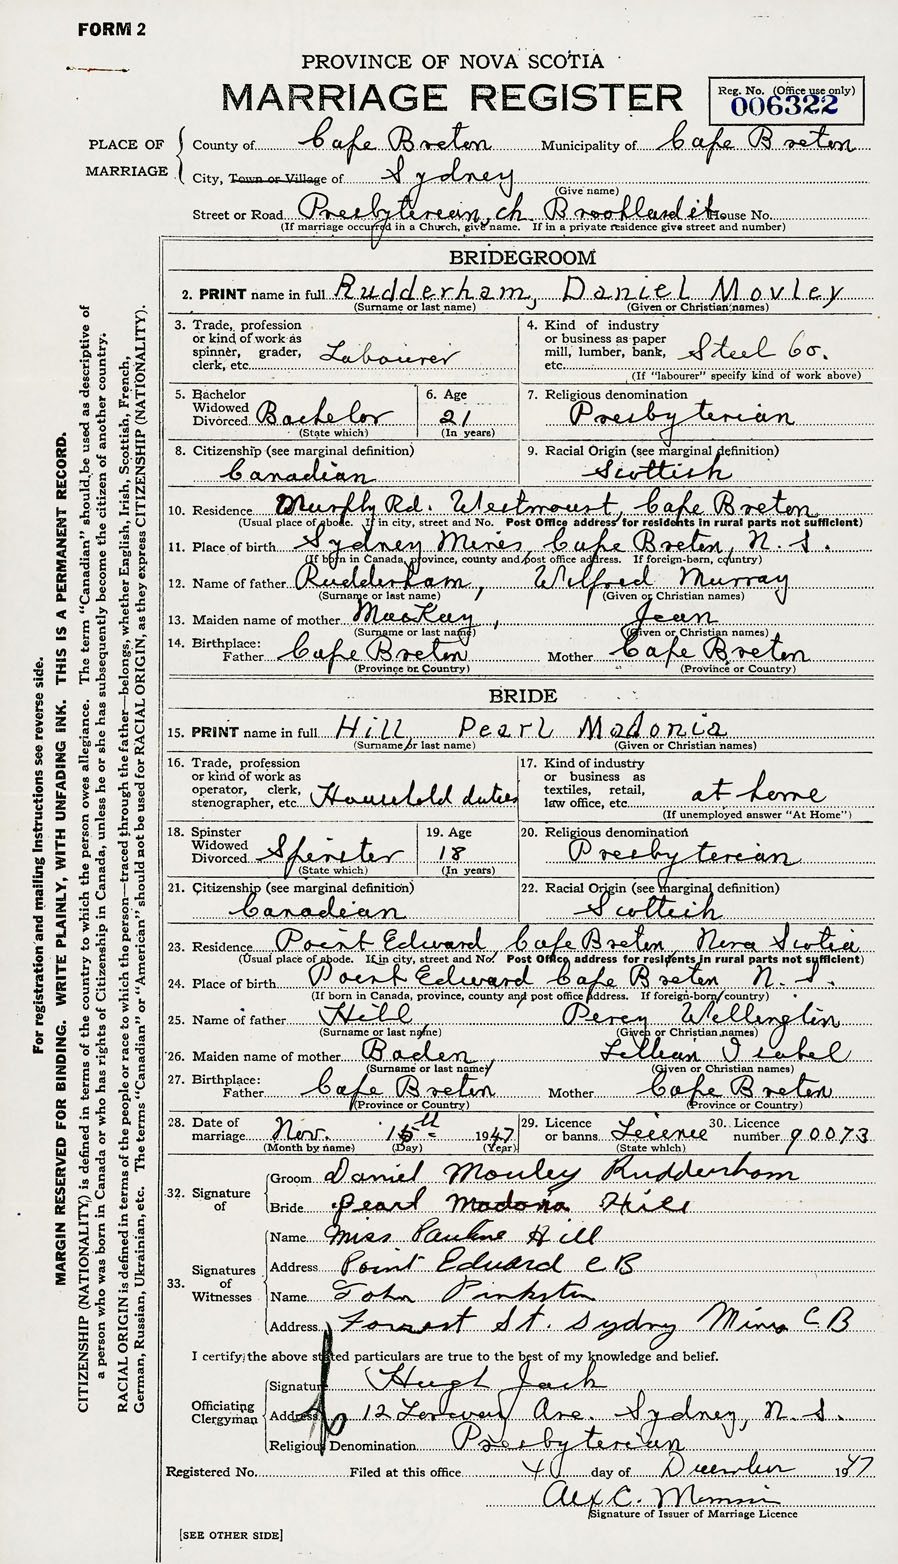 FORM 2
PROVINCE OF NOVA SCOTIA
MARRIAGE REGISTER
Reg. No. (Office use only)
006322
PLACE OF MARRIAGE
County of Cape Breton Municipality of Cape Breton
City, Town or Village of Sydney
(Give name)
Street or Road Presbyterean, ch Brookland st House No.
(If marriage occurred in a Church, give name. If in a private residence give street and number)
BRIDEGROOM
2. PRINT name in full Rudderham, Daniel Movley
(Surname or last name) (Given or Christian names)
3. Trade, profession or kind of work as spinner, grader, clerk, etc. Labourer
4. Kind of industry or business as paper mill, lumber, bank, etc. Steel Co.
(If "labourer" specify kind of work above)
5. Bachelor Widowed Divorced Bachelor
(State which)
6. Age 21
(In years)
7. Religious denomination Presbyterian
8. Citizenship (see marginal definition) Canadian
9. Racial Origin (see marginal definition) Scottish
10. Residence Murphy Rd. Westmount, Cape Breton
(Usual place of abode. If in city, street and No. Post Office address for residents in rural parts not sufficient)
11. Place of birth Sydney Mines, Cape Breton, N. S.
(If born in Canada, province, county and post office address. If foreign-born, country)
12. Name of father Rudderham, Wilfred Murray
(Surname or last name) (Given or Christian names)
13. Maiden name of mother MacKay, Jean
(Surname or last name) (Given or Christian names)
14. Birthplace: Father Cape Breton Mother Cape Breton
(Province or Country) (Province or Country)
BRIDE
15. PRINT name in full Hill Pearl Madonia
(Surname or last name) (Given or Christian names)
16. Trade, profession or kind of work as operator, clerk, stenographer, etc. Household duties
17. Kind of industry or business as textiles, retail, law office, etc. at home
(If unemployed answer "At Home")
18. Spinster Widowed Divorced Spinster
(State which)
19. Age 18
(In years)
20. Religious denomination Presbyterian
21. Citizenship (see marginal definition) Canadian
22. Racial Origin (see marginal definition) Scottish
23. Residence Point Edward Cape Breton Nova Scotia
(Usual place of abode. If in city, street and No. Post Office address for residents in rural parts not sufficient)
24. Place of birth Point Edward Cape Breton N. S.
(If born in Canada, province, county and post office address. If foreign-born country)
25. Name of father Hill Percy Wellington
(Surname or last name) (Given or Christian names)
26. Maiden name of mother Baden, Lillian Isabel
(Surname or last name) (Given or Christian names)
27. Birthplace: Father Cape Breton Mother Cape Breton
(Province or Country) (Province or Country)
28. Date of marriage Nov. 15th 1947
(Month by name) (Day) (Year)
29. Licence or banns Licence
(State which)
30. Licence number 90073
32. Signature of
Groom Daniel Mouley Rudderham
Bride Pearl Madonia Hill
33. Signatures of Witnesses
Name Miss Pauline Hill
Address Point Edward C B
Name John Pinkston
Address Forrest St. Sydney Mines C B
I certify the above stated particulars are true to the best of my knowledge and belief.
Officiating Clergyman
Signature Hugh Jack
Address 12 Ave. Sydney, N. S.
Religious Denomination Presbyterian
Registered No. Filed at this office 4 day of December 1947
Alex C.
Signature of Issuer of Marriage Licence
[SEE OTHER SIDE]
For registration and mailing instructions see reverse side.
MARGIN RESERVED FOR BINDING. WRITE PLAINLY, WITH UNFADING INK. THIS IS A PERMANENT RECORD.
CITIZENSHIP (NATIONALITY) is defined in terms of the country to which the person owes allegiance. The term "Canadian" should be used as descriptive of
a person who was born in Canada or who has rights of Citizenship in Canada, unless he or she has subsequently become the citizen of another country.
RACIAL ORIGIN is defined in terms of the people or race to which the person—traced through the father—belongs, whether English, Irish, Scottish, French,
German, Russian, Ukrainian, etc. The terms "Canadian" or "American" should not be used for RACIAL ORIGIN, as they express CITIZENSHIP (NATIONALITY).